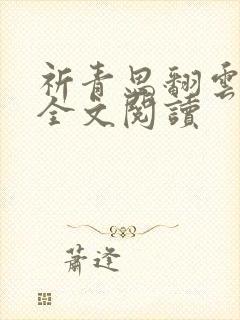 祈青思翻雲
全文閱讀
蕭逢